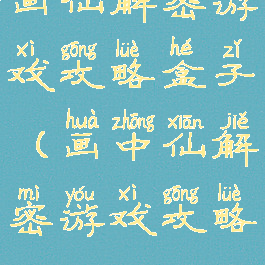 画仙解密游
xì gōng lüè hé zǐ
戏攻略盒子
huà zhōng xiān jiě
(画中仙解
mì yóu xì gōng lüè
密游戏攻略